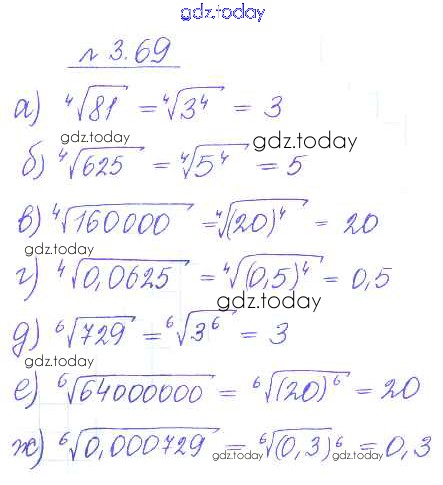 gdz.today
№ 3.69
а) ⁴√81 = ⁴√3⁴ = 3
gdz.today
gdz.today
б) ⁴√625 = ⁴√5⁴ = 5
в) ⁴√160000 = ⁴√(20)⁴ = 20
gdz.today
г) ⁴√0,0625 = ⁴√(0,5)⁴ = 0,5
gdz.today
д) ⁶√729 = ⁶√3⁶ = 3
gdz.today
е) ⁶√64000000 = ⁶√(20)⁶ = 20
ж) ⁶√0,000729 = ⁶√(0,3)⁶ = 0,3
gdz.today
gdz.today